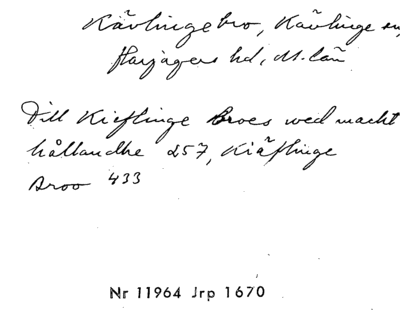 Kävlinge bro, Kävlinge sn,
Harjagers hd, M. län
Till Kieflinge Broes wed macht
hållandhe 257, Kiäflinge
Broo 433
Nr 11964 Jrp 1670